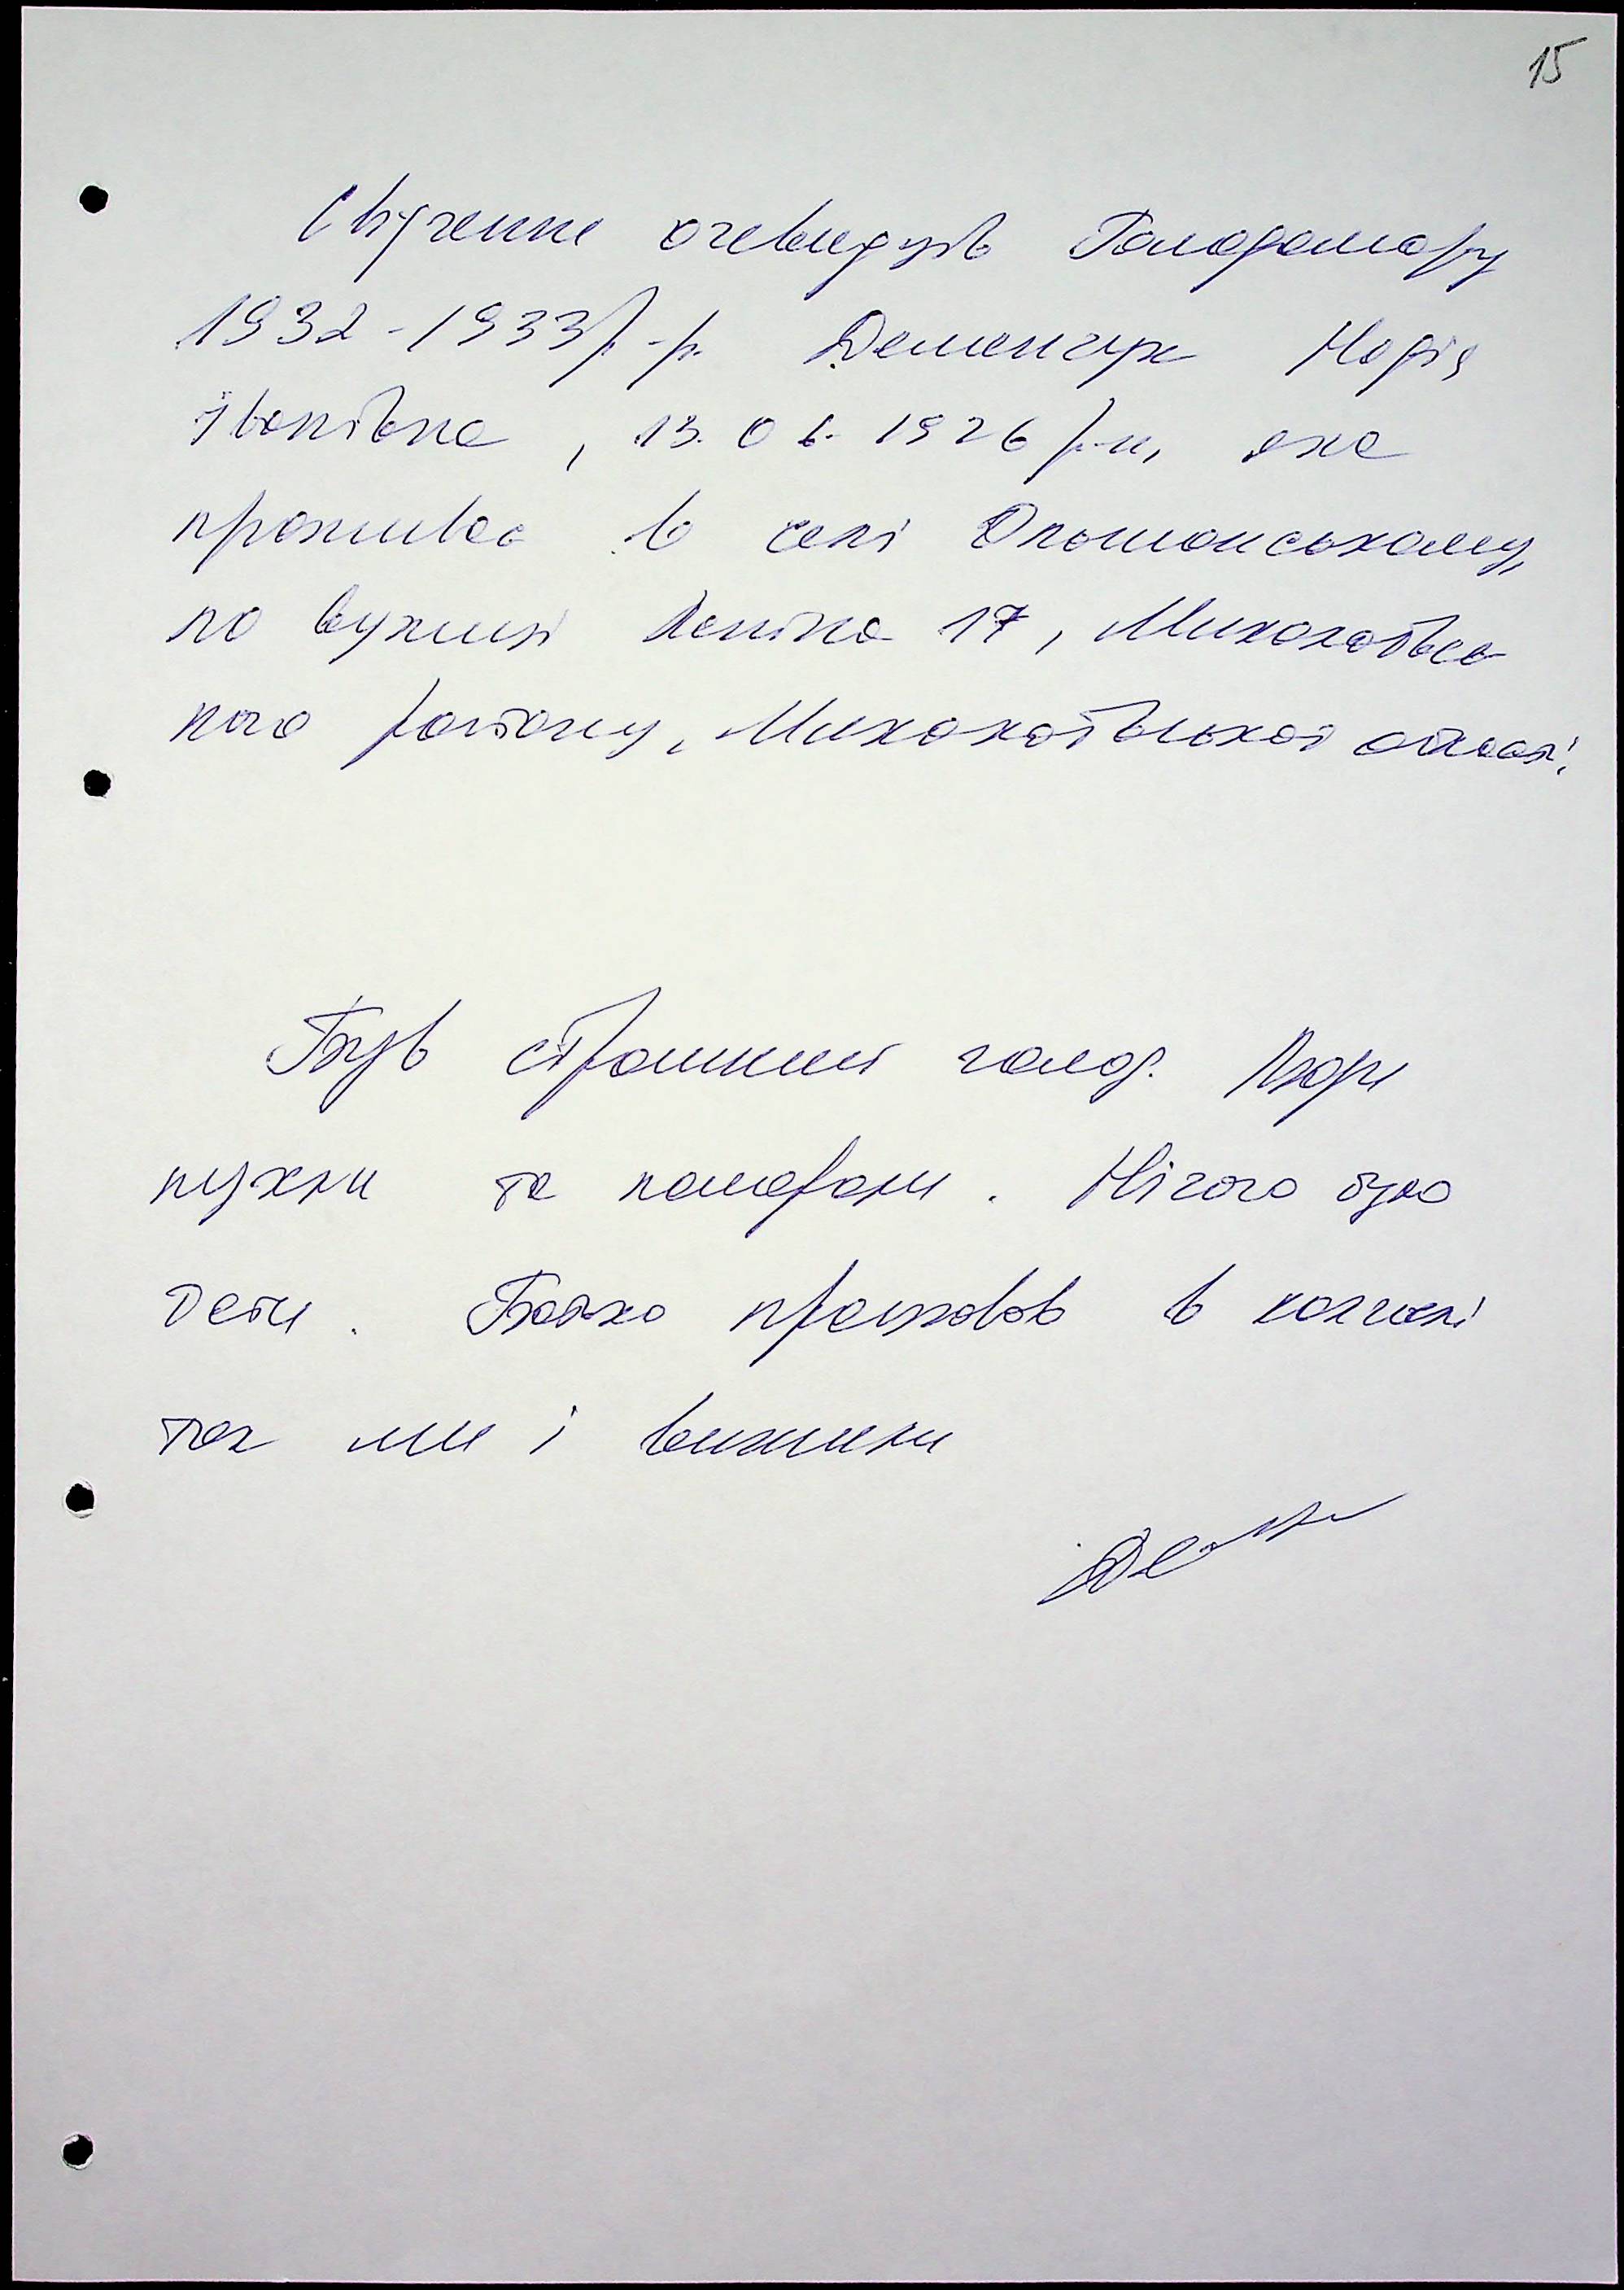 15
Свідчення очевидців Голодомору
1932-1933 р.-р. Деменчук Марія
Іванівна, 13.06.1926 р.н., яка
проживає в селі Ольшанському,
по вулиці Леніна 17, Миколаївсь
кого району, Миколаївської області.
Був страшний голод. Люди
пухли та помирали. Нічого було
їсти. Батько працював в колгоспі
так ми і вижили